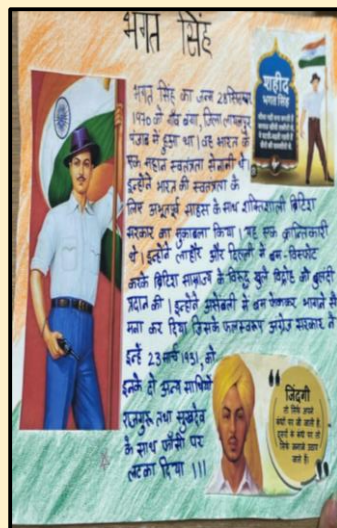 भगत सिंह
भगत सिंह का जन्म 28 सितम्बर
1970 को गाँव बंगा, जिला लायलपुर
पंजाब में हुआ था। वह भारत के
एक महान स्वतंत्रता सेनानी थे।
इन्होंने भारत की स्वतंत्रता के
लिए अभूतपूर्व साहस के साथ शक्तिशाली ब्रिटिश
सरकार का मुकाबला किया। वह एक क्रांतिकारी
थे। इन्होंने लाहौर और दिल्ली में बम-विस्फोट
करके ब्रिटिश साम्राज्य के विरुद्ध खुले विद्रोह को बुलंदी
प्रदान की। इन्होंने असेंबली में बम फेंककर भागने से
मना कर दिया जिसके फलस्वरूप अंग्रेज सरकार ने
इन्हें 23 मार्च 1931, को
इनके दो अन्य साथियों
राजगुरु तथा सुखदेव
के साथ फाँसी पर
लटका दिया ।।।
शहीद
भगत सिंह
जिंदगी
तो सिर्फ अपने
कंधों पर जी जाती है,
दूसरों के कंधे पर तो
सिर्फ जनाजे उठाए
जाते हैं।